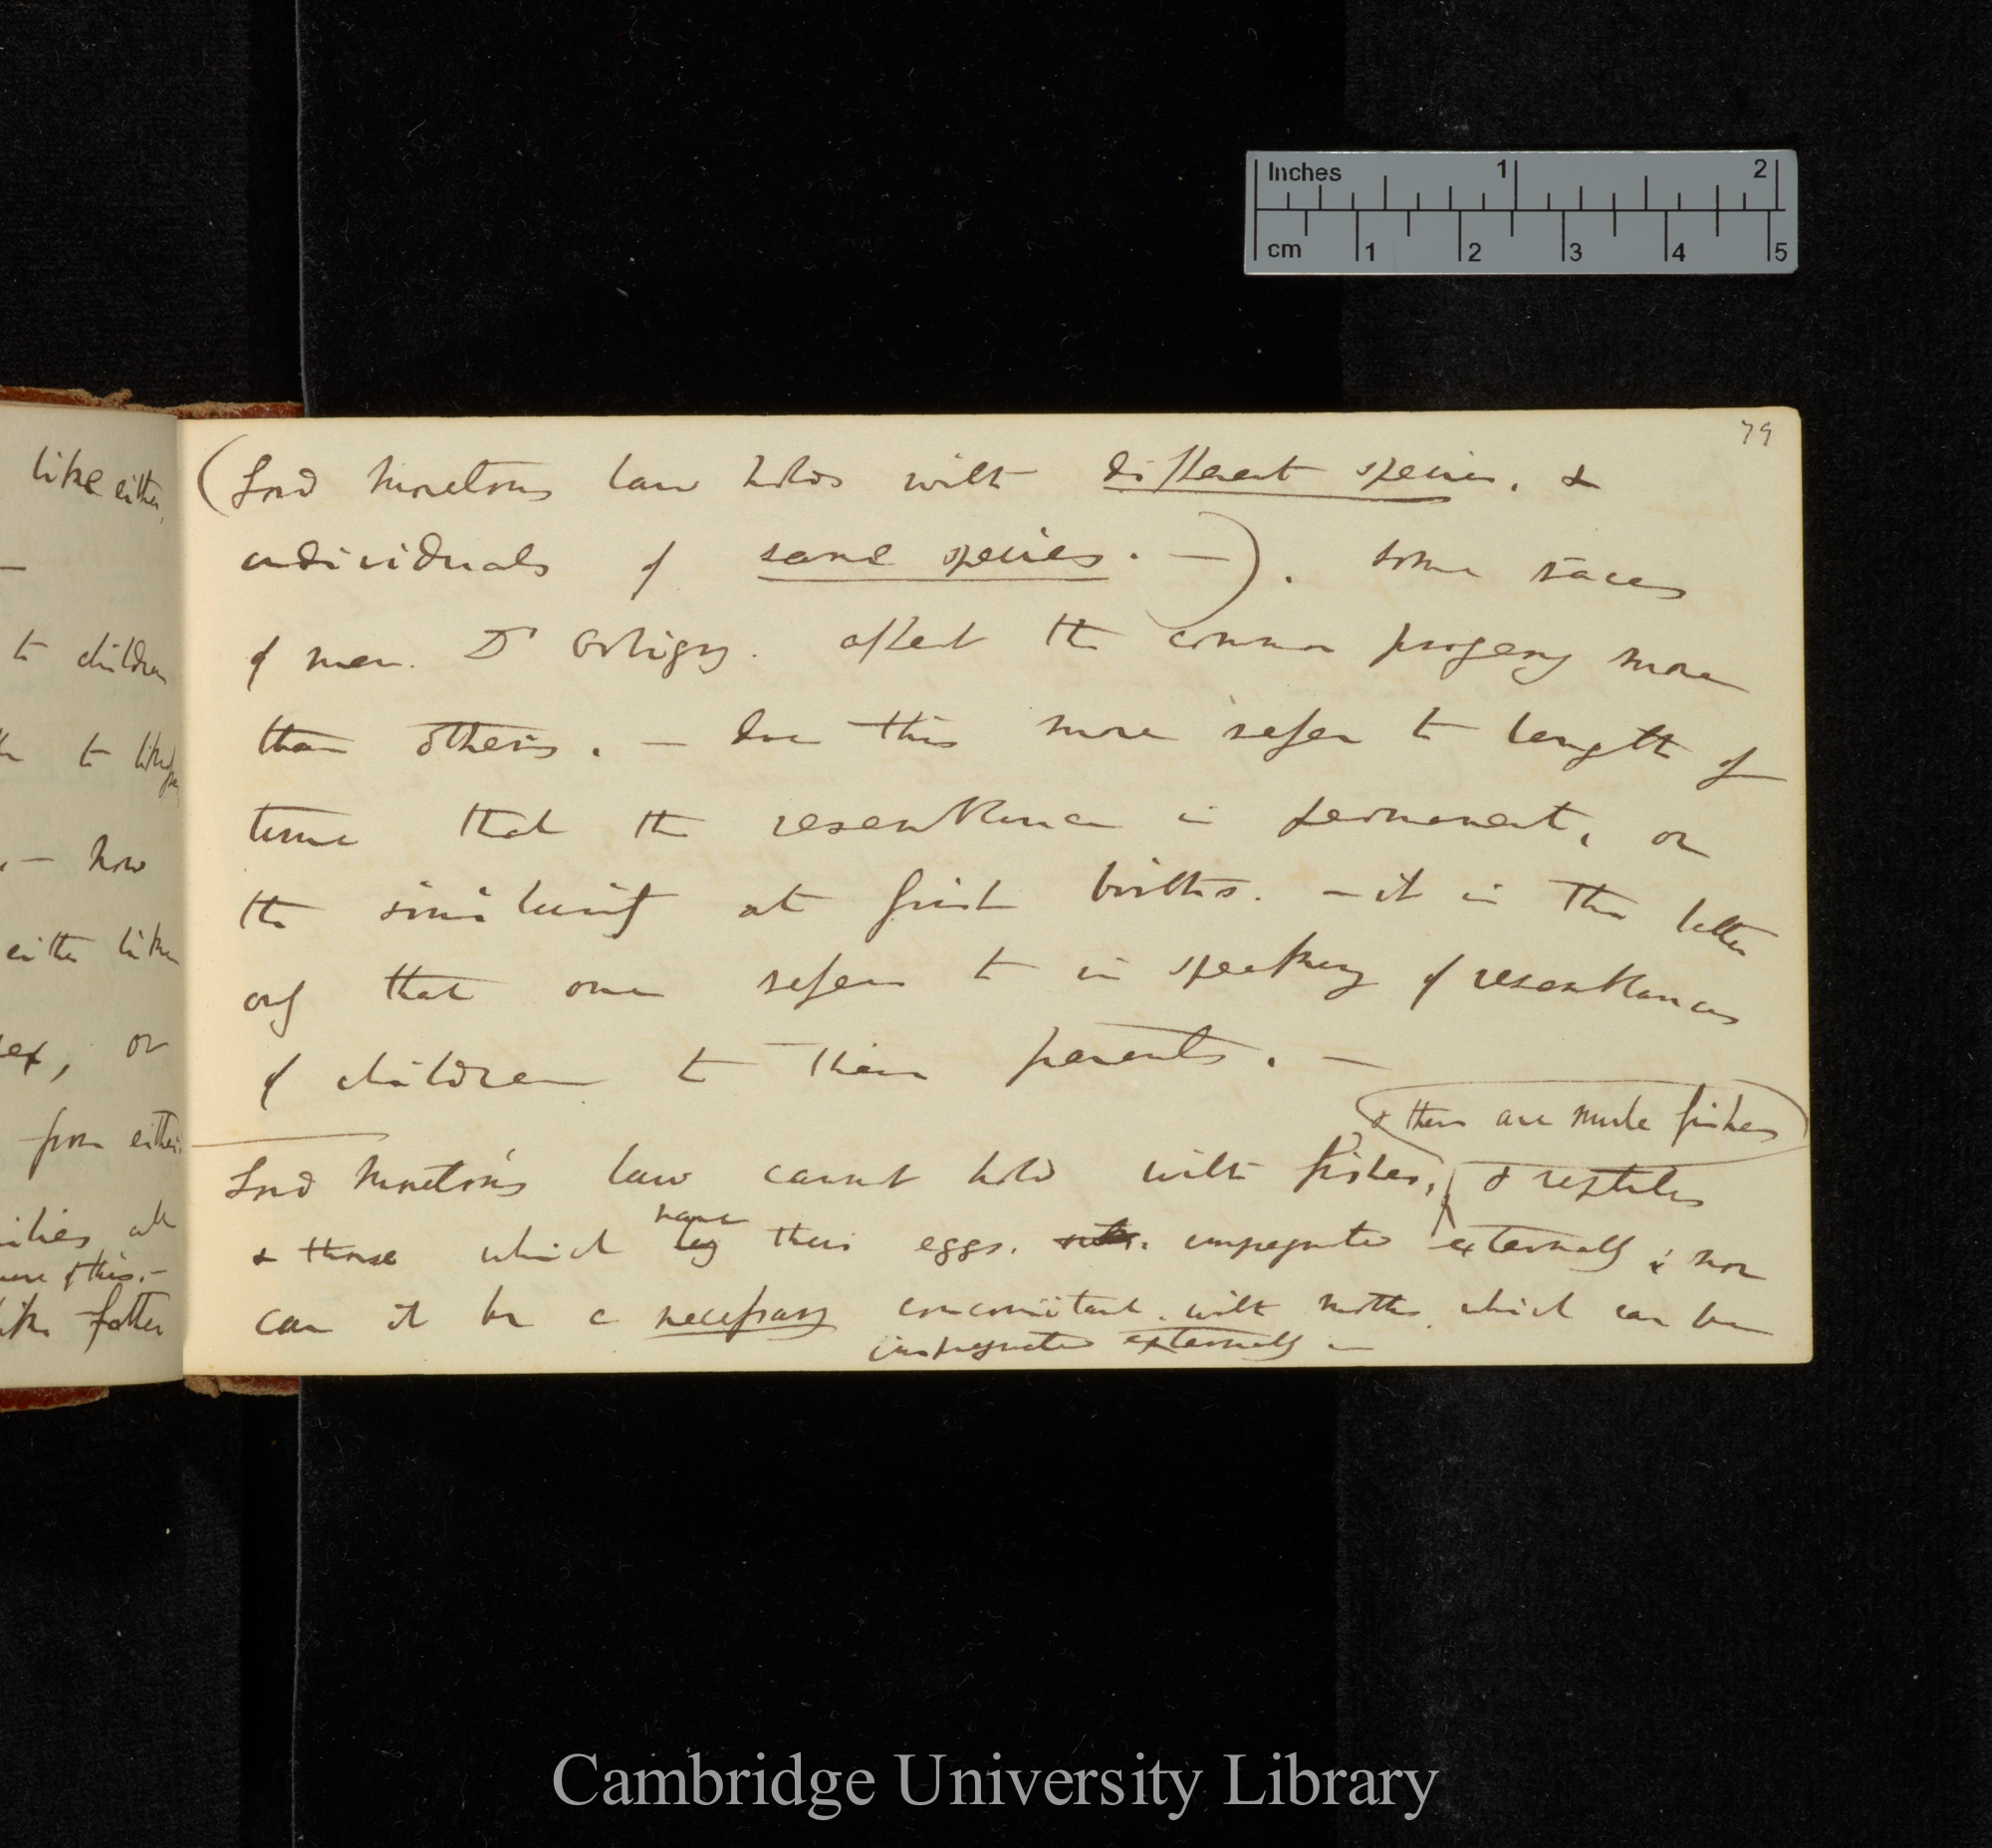 Inches 1 2
cm 1 2 3 4 5
79
like either,
—
to children
to
. — how
either like
sex, or
from either.
families all
more of this. —
like father
(Lord Moretons law holds with different species. &
individuals of same species. —). Some races
of men. D' Orbigny. affect the common progeny more
than others. — does this more refer to length of
time that the resemblance is permanent, or
the similarity at first births. — it is the latter
only that one refers to in speaking of resemblances
of children to their parents. —
& there are mule fishes
Lord Moreton's law cannot hold with fishes, & reptiles
have
& those which lay their eggs. impregnated externally; nor
can it be a necessary concomitant. with moths. which can be
impregnated externally —
Cambridge University Library